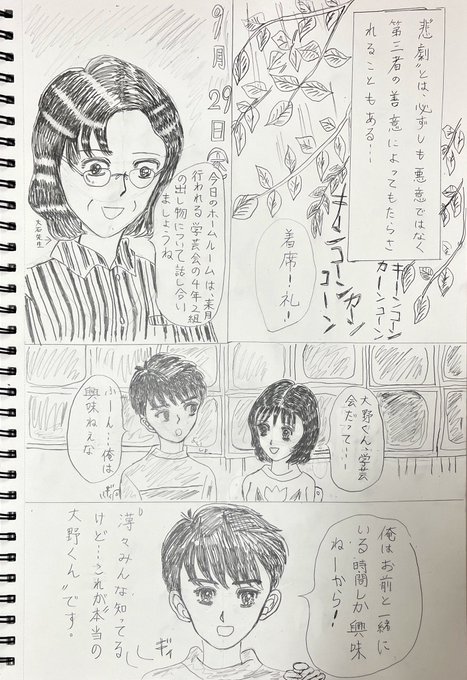 “悲劇”とは、必ずしも悪意ではなく
第三者の善意によってもたらさ
れることもある…
キーンコーン
カーンコーン
キーンコーンカーン
コーン
着席!礼!
9月29日
今日のホームルームは、来月
行われる学芸会の4年2組
の出し物について話し合い
ましょうね
大石先生
大野くん、学芸
会だって…
ふーん…俺は
興味ねぇな
俺はお前と一緒に
いる時間しか興味
ねーから!
薄々みんな知ってる
けど…これが“本当の
大野くん”です。